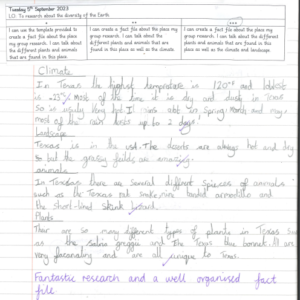 Tuesday 5th September 2023
LO: To research about the diversity of the Earth
I can use the template provided to create a fact file about the place my group research. I can talk about the different plants and animals that are found in this place.
I can create a fact file about the place my group research. I can talk about the different plants and animals that are found in this place as well as the climate.
I can create a fact file about the place my group research. I can talk about the different plants and animals that are found in this place as well as the climate and landscape.
Climate
In Texas the highest temperature is 120°F and lowest
is -23°F most of the time it is dry and dusty in Texas
So is usually Very hot it rains alot in Spring, March and may,
most of the rain lasts up to 2 days
Landscape
Texas is in the usa. The deserts are always hot and dry
but the grassy fields are amazing.
animals
In Texas there are several different species of animals
such as the Texas rat snake, nine banded armadillo and
the short-lined skink lizard.
Plants
Their are so many different types of plants in Texas such
as the salvia greggii and The Texas blue bonnet. All are
very fascinating and are all unique to Texas.
Fantastic research and a well organised fact
file.